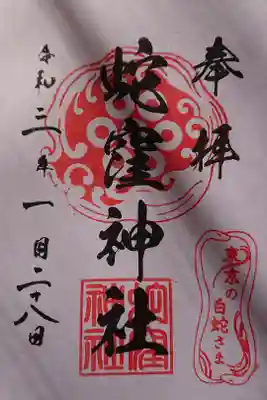 奉拝
東京の
白蛇さま
蛇窪神社
蛇窪
神社
令和三年一月二十八日